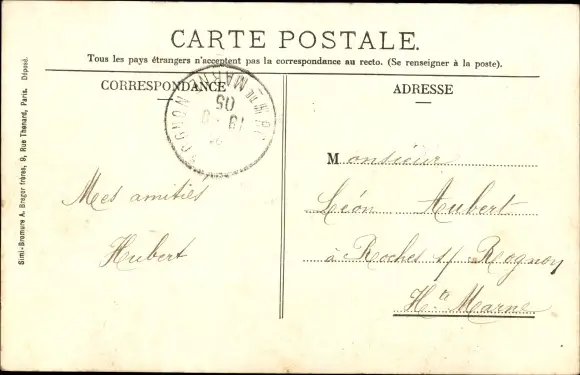 CARTE POSTALE.
Tous les pays étrangers n'acceptent pas la correspondance au recto. (Se renseigner à la poste).
CORRESPONDANCE
ADRESSE
Mes amitiés
Hubert
Monsieur
Léon Aubert
à Roches s/ Rognon
Hte Marne
Simi-Bromure A. Breger frères, 9, Rue Thenard, Paris. Déposé.
MARNE
05